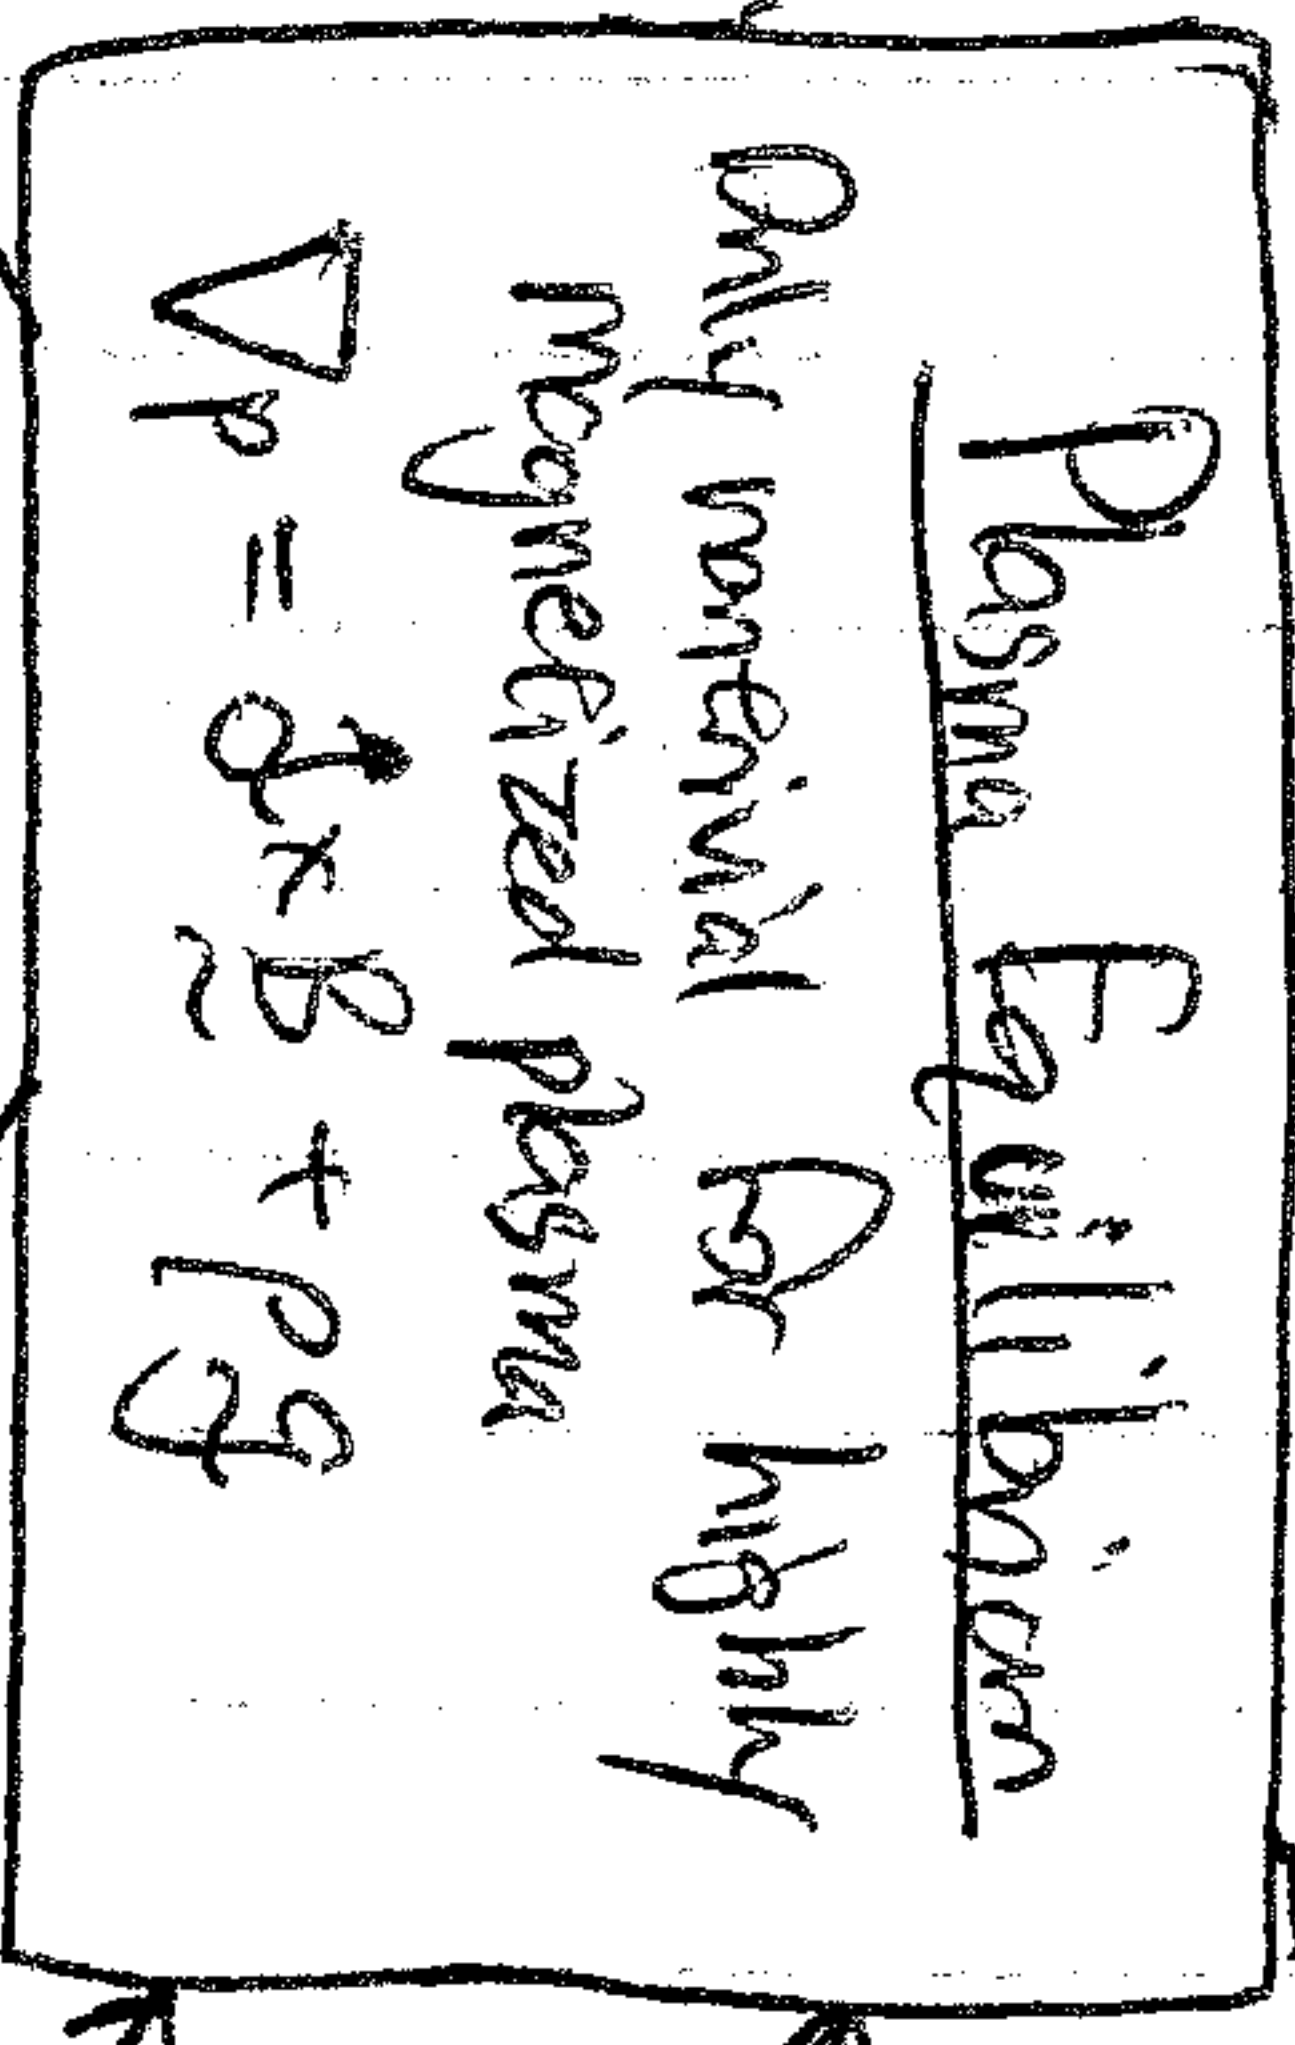 Plasma Equilibrium
Only nontrivial for highly
magnetized plasma
∇p = J × B + ρg